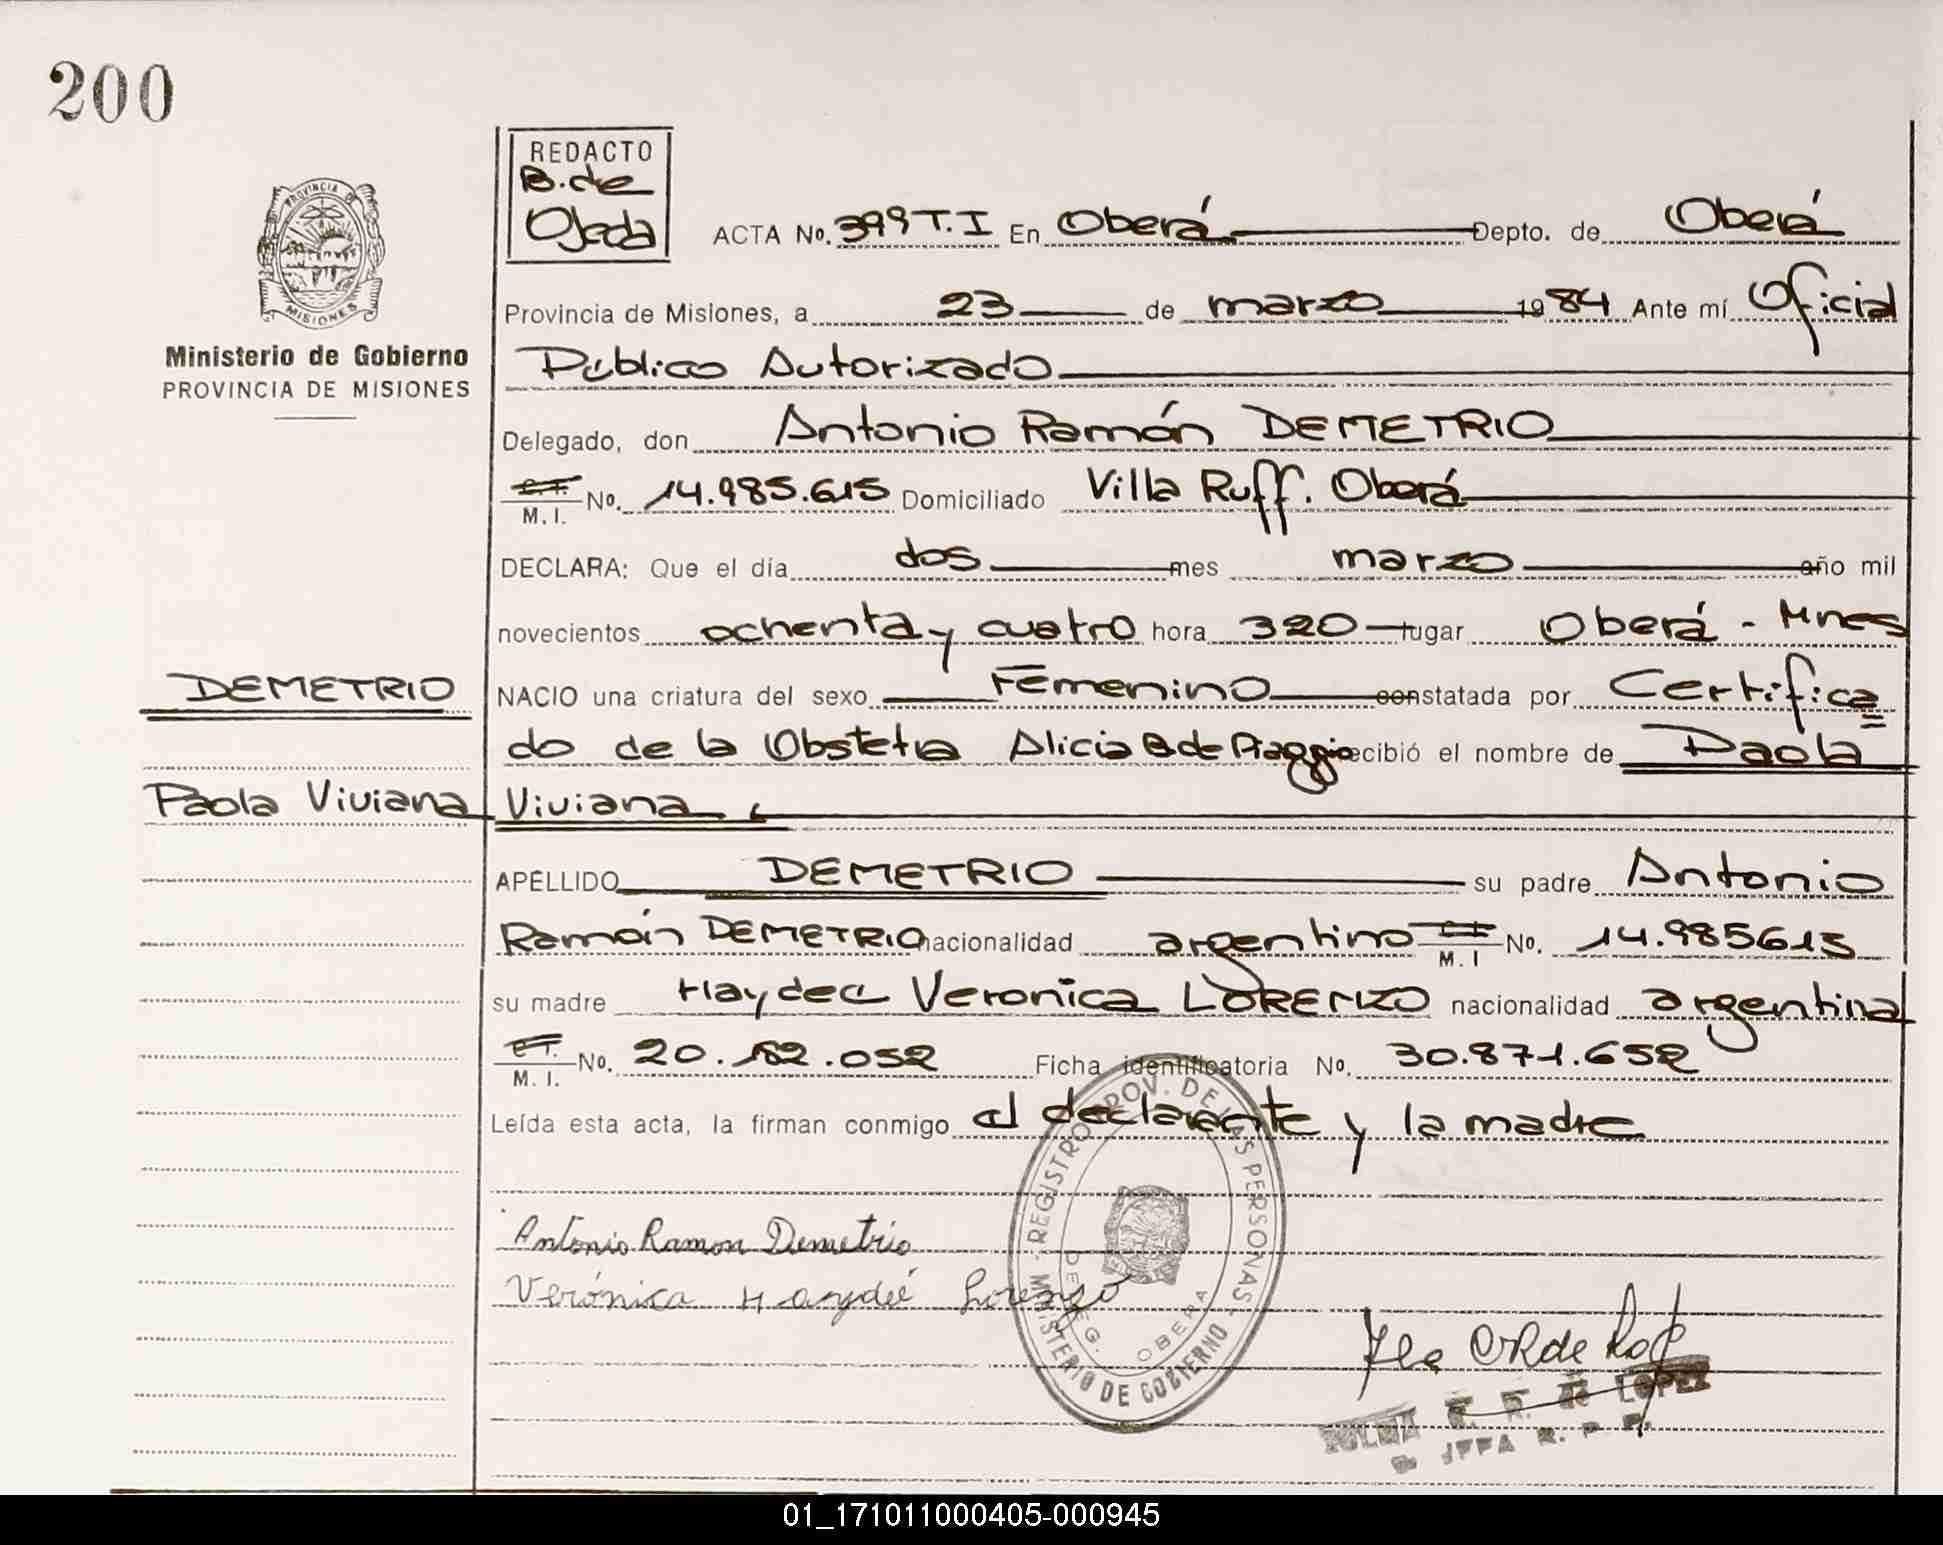 200
REDACTO
B. de
Ojeda
PROVINCIA DE
MISIONES
Ministerio de Gobierno
PROVINCIA DE MISIONES
ACTA No. 399 T.I En Oberá Depto. de Oberá
Provincia de Misiones, a 23 de marzo 1984 Ante mí Oficial
Público Autorizado
Delegado, don Antonio Ramón DEMETRIO
C.I.
M. I. No. 14.985.615 Domiciliado Villa Ruff. Oberá
DECLARA: Que el día dos mes marzo año mil
novecientos ochenta y cuatro hora 320 lugar Oberá - Mnes
DEMETRIO
NACIO una criatura del sexo Femenino constatada por Certifica
do de la Obstetra Alicia B de Piaggio recibió el nombre de Paola
Paola Viviana
Viviana
APELLIDO DEMETRIO su padre Antonio
Ramón DEMETRIO nacionalidad argentino M. I No. 14.985615
su madre Haydee Veronica LORENZO nacionalidad argentina
M. I. No. 20. .052 Ficha identificatoria No. 30.871.652
Leída esta acta, la firman conmigo el declarante y la madre
Antonio Ramon Demetrio
Verónica Haydeé Lorenzo
MINISTERIO DE GOBIERNO - REGISTRO PROV. DE LAS PERSONAS -
DELEG. OBERA
de LOPEZ
JEFA R. P. P.
01_171011000405-000945